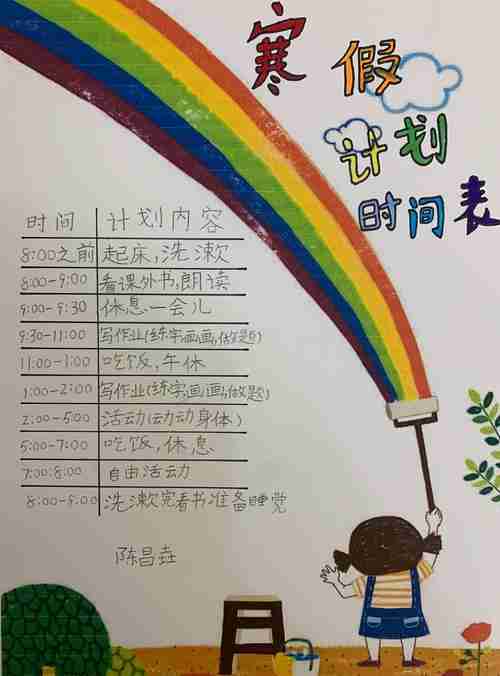 寒假
计划
时间表
时间 计划内容
8:00之前 起床,洗漱
8:00-9:00 看课外书,朗读
9:00-9:30 休息一会儿
9:30-11:00 写作业(练字画画,做题)
11:00-1:00 吃饭,午休
1:00-2:00 写作业(练字画画,做题)
2:00-5:00 活动(动动身体)
5:00-7:00 吃饭,休息
7:00:8:00 自由活动
8:00-9:00 洗漱完看书准备睡觉
陈昌垚